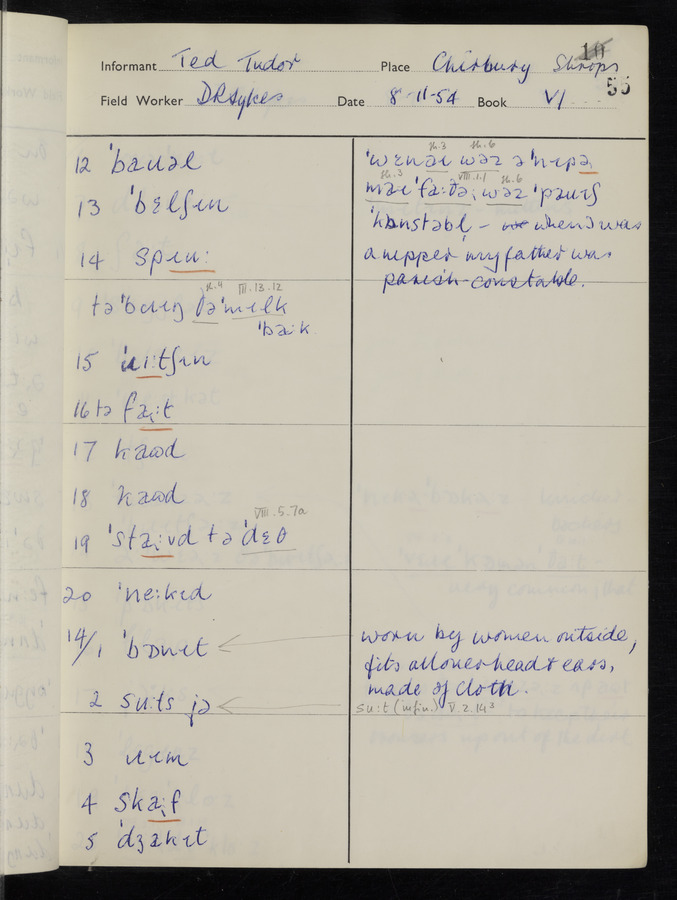 10
Informant Ted Tudor Place Chirbury Shrops
55
Field Worker DRSykes Date 8-11-54 Book VI
12 ˈbauəl
13 ˈbɛlʃɪn
14 spɪu:
IX.4 III.13.12
tə ˈbɹɪŋ ðə ˈmɪlk
ˈbaːk
15 ˈɪʃɪn
16 tə
17 kaʊd
18 kaʊd
19 ˈstaːvd tə ˈdɛθ
VIII.5.7a
20 ˈneːkɪd
14/1 ˈbɒnɪt
2 suːts jə
3 rɪm
4 skaːf
5 ˈdʒakɪt
IX.3 IX.6
ˈwɛn aɪ waz ə ˈnɪpə
IX.3 VIII.1.1 IX.6
maɪ ˈfaːðə waz ˈpaɹɪʃ
ˈkʊnstəbl̩ – when I was
a nipper my father was
parish constable.
worn by women outside,
fits all over head & ears,
made of cloth.
suːt (infin.) V.2.14³